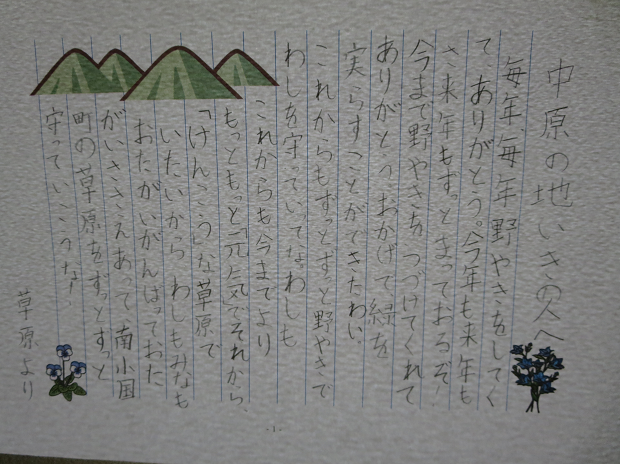 中原の地いきの人へ
毎年、毎年野やきをしてく
てありがとう。今年も来年も
さ来年もずっとまっておるぞ!
今まで野やきを つづけてくれて
ありがとう おかげで緑を
実らすことができたわい。
これからもずっとずと野やきで
わしを守っていてな。わしも
これからも今までより
もっともっと「元気でそれから
「けんこう」な草原で
いたいから わしもみなも
おたがいがんばっておた
がいささえあって 南小国
町の草原をずっとずっと
守っていこうな!
草原より
-1-